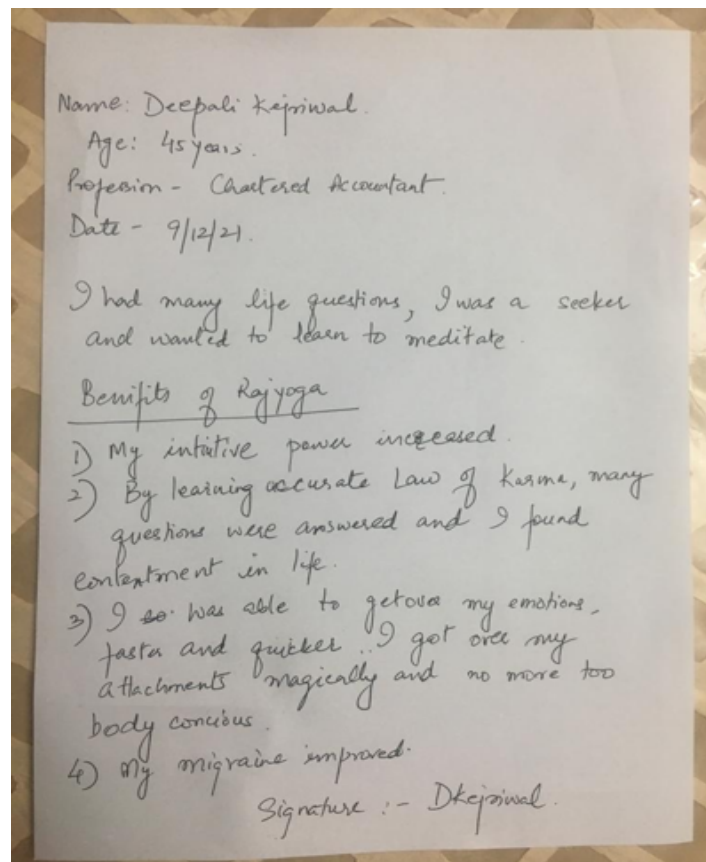 Name: Deepali Kejriwal.
Age: 45 years.
Profession - Chartered Accountant.
Date - 9/12/21.
I had many life questions, I was a seeker
and wanted to learn to meditate.
Benifits of Rajyoga
1) My intutive power increased.
2) By learning accurate Law of Karma, many
questions were answered and I found
contentment in life.
3) I was able to getover my emotions,
faster and quicker.. I got over my
attachments magically and no more too
body concious.
4) My migraine improved.
Signature :- DKejriwal.